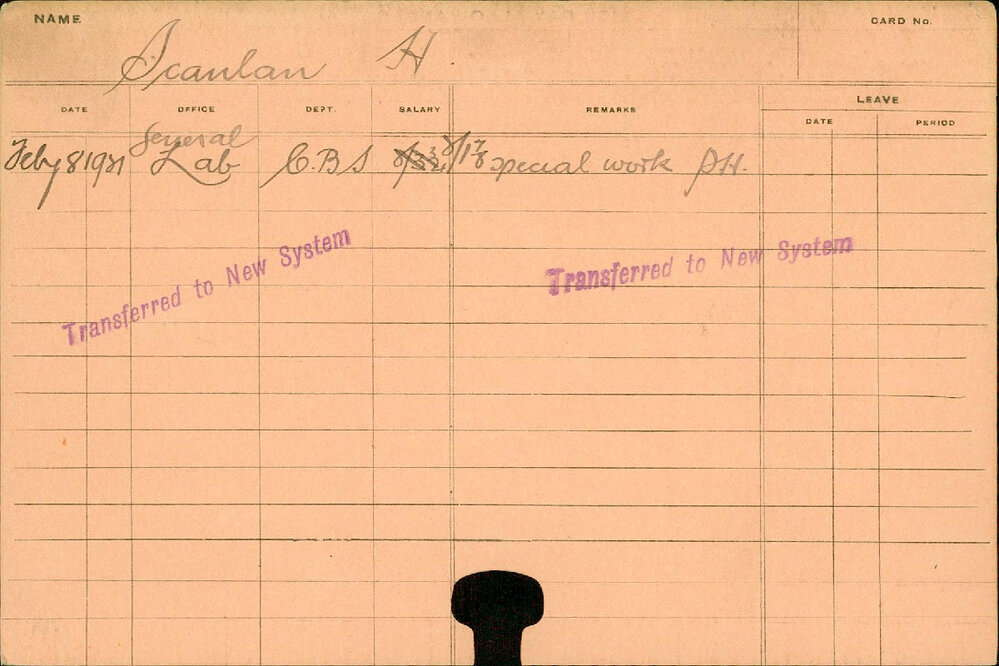 NAME
CARD No.
Scanlan H
DATE OFFICE DEPT. SALARY REMARKS LEAVE
DATE PERIOD
General
Feby 8 1921 Lab C.B.S 8/17 special work PH.
Transferred to New System
Transferred to New System